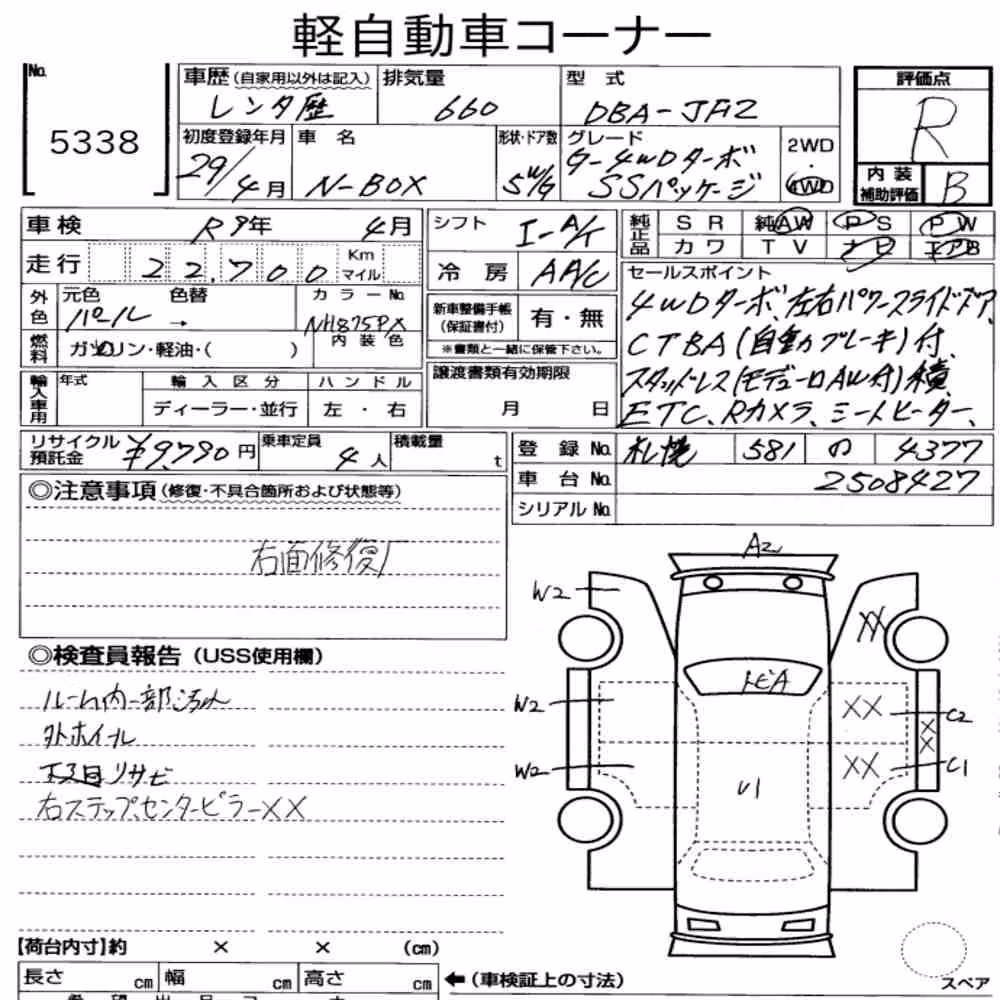 軽自動車コーナー
No.
5338
車歴(自家用以外は記入)
レンタ歴
排気量
660
型 式
DBA-JF2
評価点
R
初度登録年月
29/4月
車 名
N-BOX
形状・ドア数
5W/G
グレード
G-4WDターボ
SSパッケージ
2WD
・
4WD
内 装
補助評価
B
車検 R9年 4月
シフト
I-A/T
純正品
SR 純AW PS PW
カワ TV ナビ エアB
走行 22,700 Km
マイル
冷 房
AA/C
セールスポイント
4WDターボ、左右パワースライドドア、
CTBA(自動ブレーキ)付、
スタッドレス(モデューロAW付)積、
ETC、Rカメラ、シートヒーター、
外色
元色 色替
パール →
カラーNo.
NH875PX
新車整備手帳
(保証書付)
有・無
※書類と一緒に保管下さい。
燃料
ガソリン・軽油・( )
内 装 色
輸入車用
年式
輸 入 区 分
ハ ン ド ル
ディーラー・並行
左 ・ 右
譲渡書類有効期限
月 日
リサイクル
預託金
¥9,790円
乗車定員
4人
積載量
t
登 録 No. 札幌 581 の 4377
車 台 No. 2508427
シリアル No.
◎注意事項(修復・不具合箇所および状態等)
右面修復歴
◎検査員報告(USS使用欄)
ルーム内一部汚れ
外ホイル
下廻リサビ
右ステップ、センターピラーXX
A2
W2
XX
トビA
W2
XX
C2
XX
W2
XX
C1
U1
【荷台内寸】約 × × (cm)
長さ cm 幅 cm 高さ cm
←(車検証上の寸法)
スペア